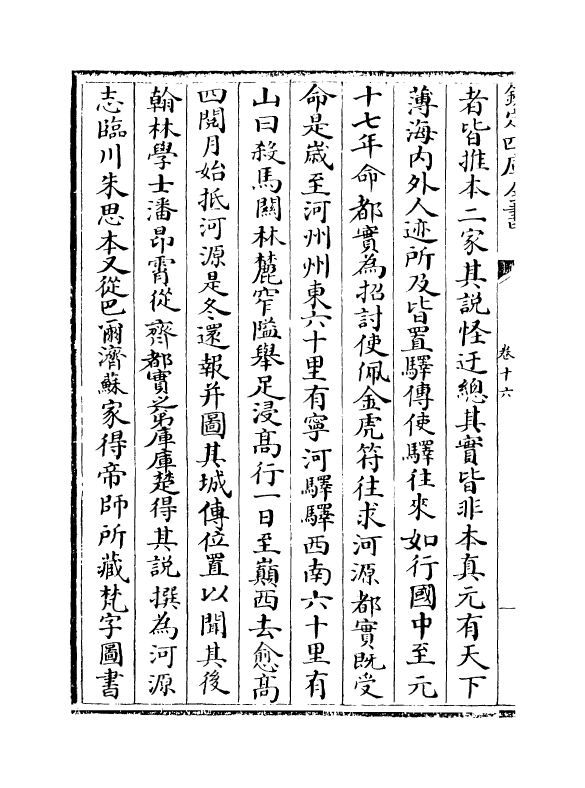 欽定四庫全書
卷十六
者皆推本二家其説怪迂總其實皆非本真元有天下
薄海内外人迹所及皆置驛傳使驛往來如行國中至元
十七年命都實為招討使佩金虎符往求河源都實既受
命是歳至河州州東六十里有寧河驛驛西南六十里有
山曰殺馬關林麓窄隘舉足浸髙行一日至巔西去愈髙
四閲月始抵河源是冬還報并圖其城傳位置以聞其後
翰林學士潘昂霄從都實之弟庫庫楚得其説撰為河源
志臨川朱思本又從巴爾濟蘇家得帝師所藏梵字圖書